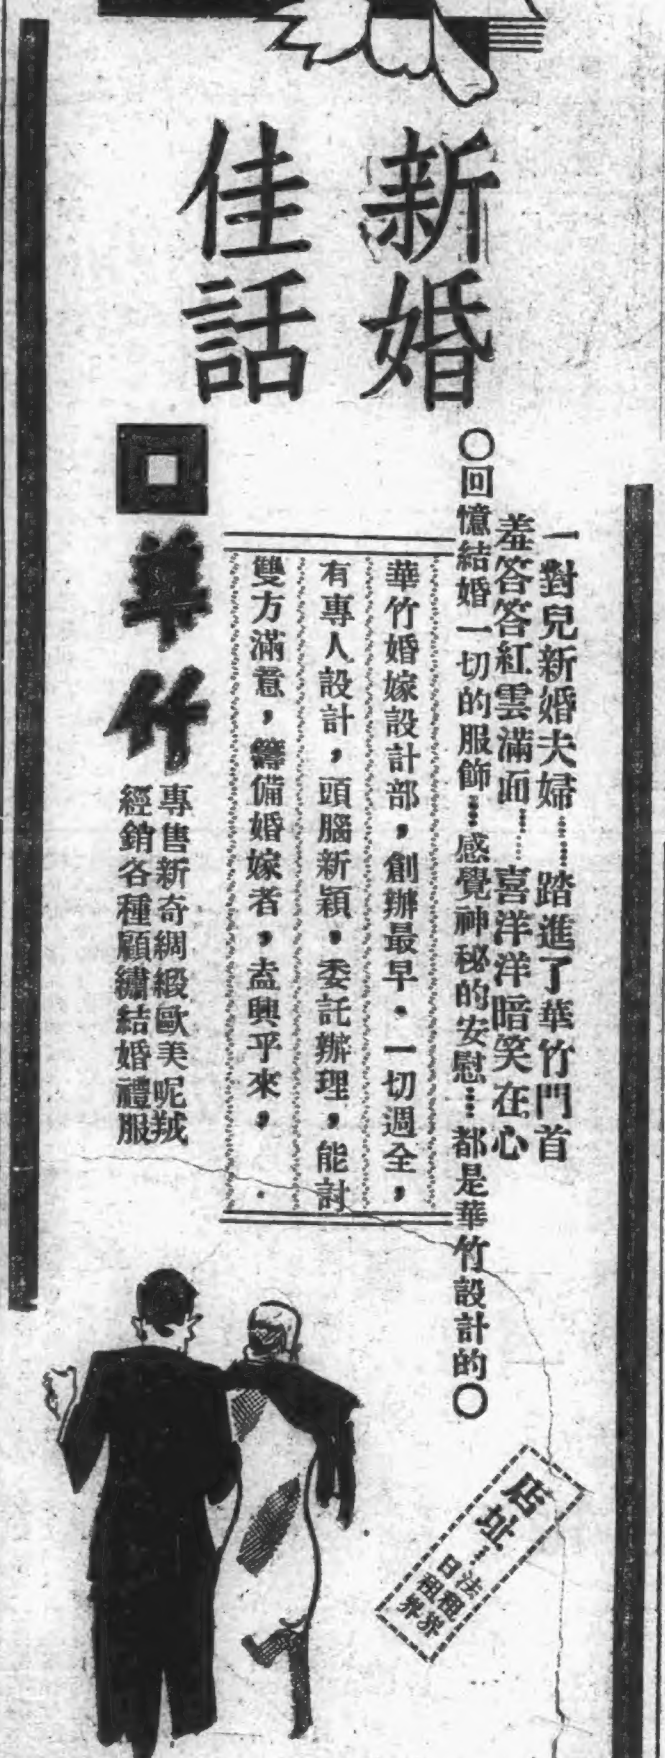 新婚
佳話
一對兒新婚夫婦……踏進了華竹門首
羞答答紅雲滿面……喜洋洋暗笑在心
〇回憶結婚一切的服飾……感覺神秘的安慰……都是華竹設計的〇
華竹婚嫁設計部，創辦最早．一切週全，
有專人設計，頭腦新穎，委託辦理，能討
雙方滿意，籌備婚嫁者，盍興乎來，．
華竹
專售新奇綢緞歐美呢羢
經銷各種顧繡結婚禮服
店址：
法租界
日租界